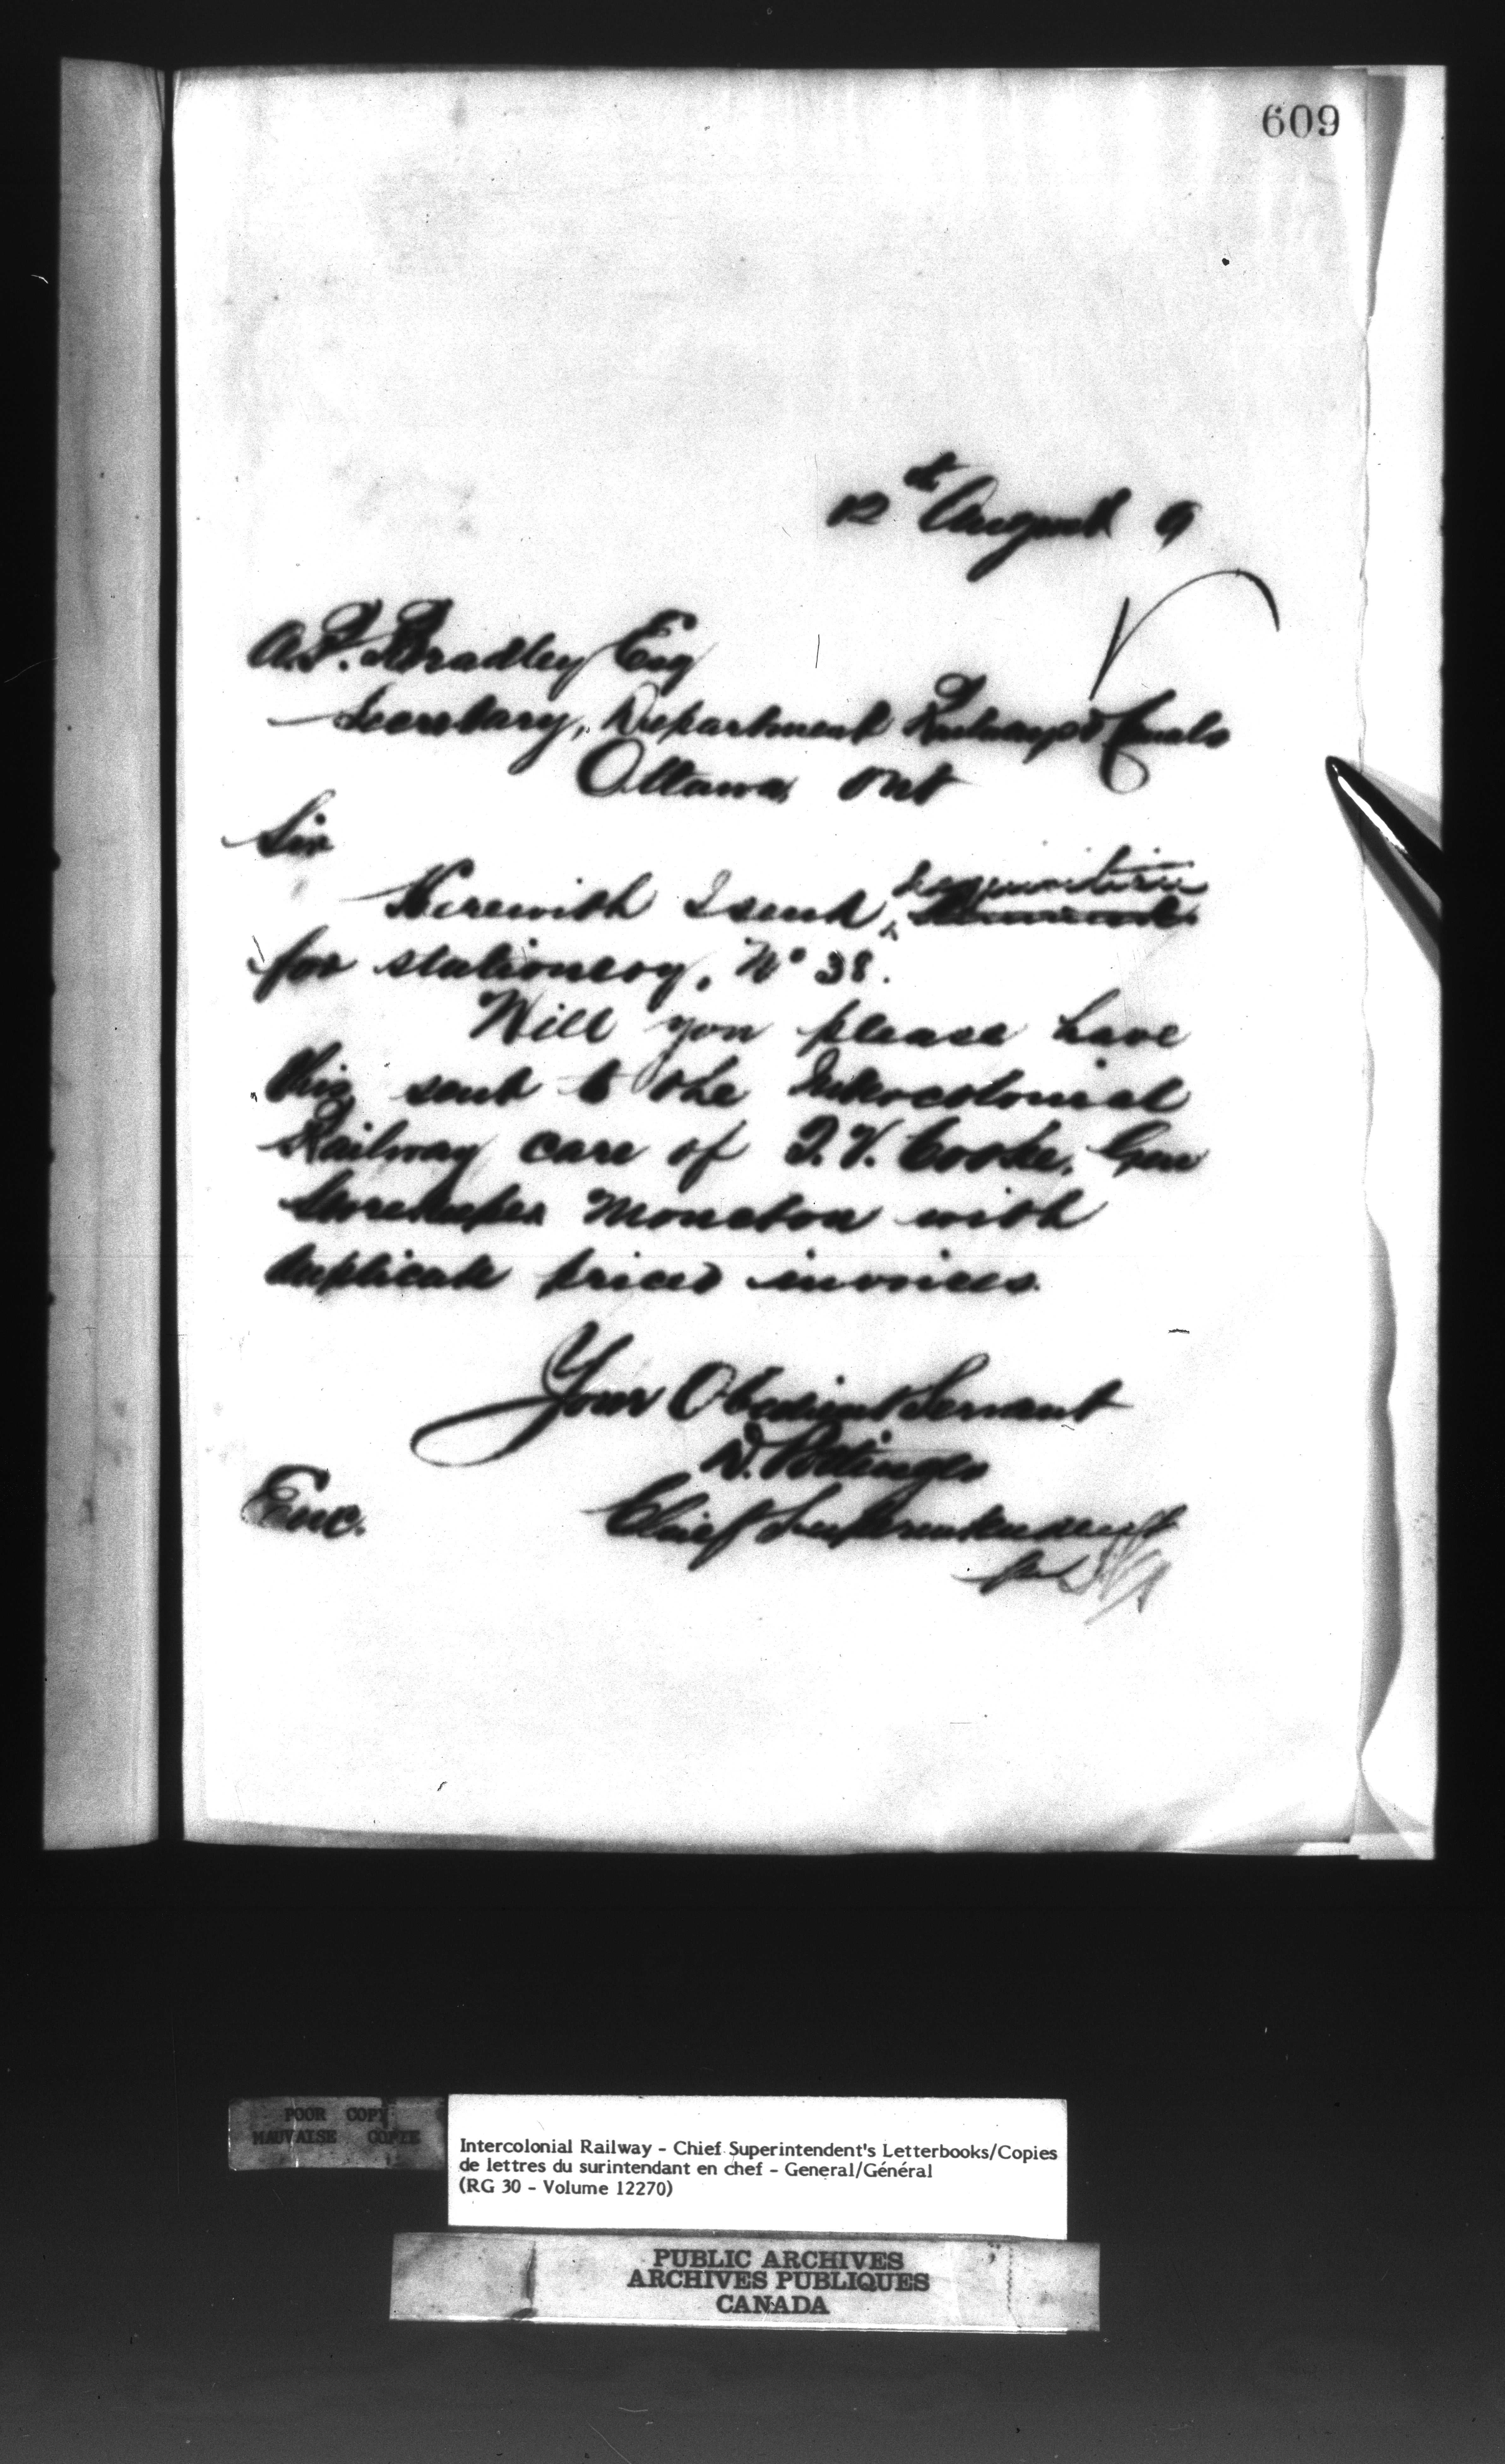 609
12th August 9
A.P. Bradley Esq
Secretary, Department Railways & Canals
Ottawa, Ont
Sir
requisition
Herewith I send
for stationery, No 38.
Will you please have
this sent to the Intercolonial
Railway care of T.V. Cooke, Gen
Storekeeper Moncton with
duplicate priced invoices.
Your Obedient Servant
D. Pottinger
Enc. Chief Superintendent
per
POOR COPY
MAUVAISE COPIE
Intercolonial Railway - Chief Superintendent's Letterbooks/Copies
de lettres du surintendant en chef - General/Général
(RG 30 - Volume 12270)
PUBLIC ARCHIVES
ARCHIVES PUBLIQUES
CANADA